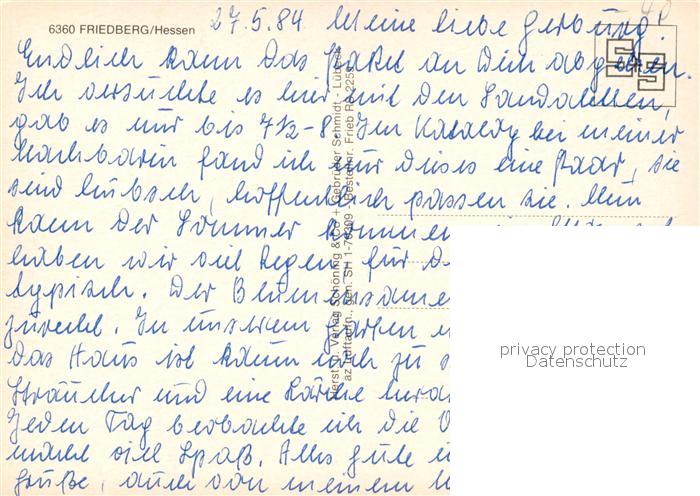 6360 FRIEDBERG/Hessen
27.5.84 Meine liebe Gerburg!
Endlich kann das Paket an Dich abgehen.
Ich versuchte es hier mit den Sandaletten,
gab es nur bis 7½-8. Im Katalog bei meiner
Nachbarin fand ich nur dieses eine Paar, sie
sind hübsch, hoffentlich passen sie. Nun
kann der Sommer kommen
haben wir viel Regen für
typisch. Der Blumensame
zurecht. In unserem Garten
das Haus ist kaum noch zu
Sträucher und eine Lärche
Jeden Tag beobachte ich die
macht viel Spaß. Alles gute
Grüße, auch von meinem
Herst. u. Verlag Schöning & Co + Gebrüder Schmidt - Lübeck
Bestellnr. Frieb
privacy protection
Datenschutz